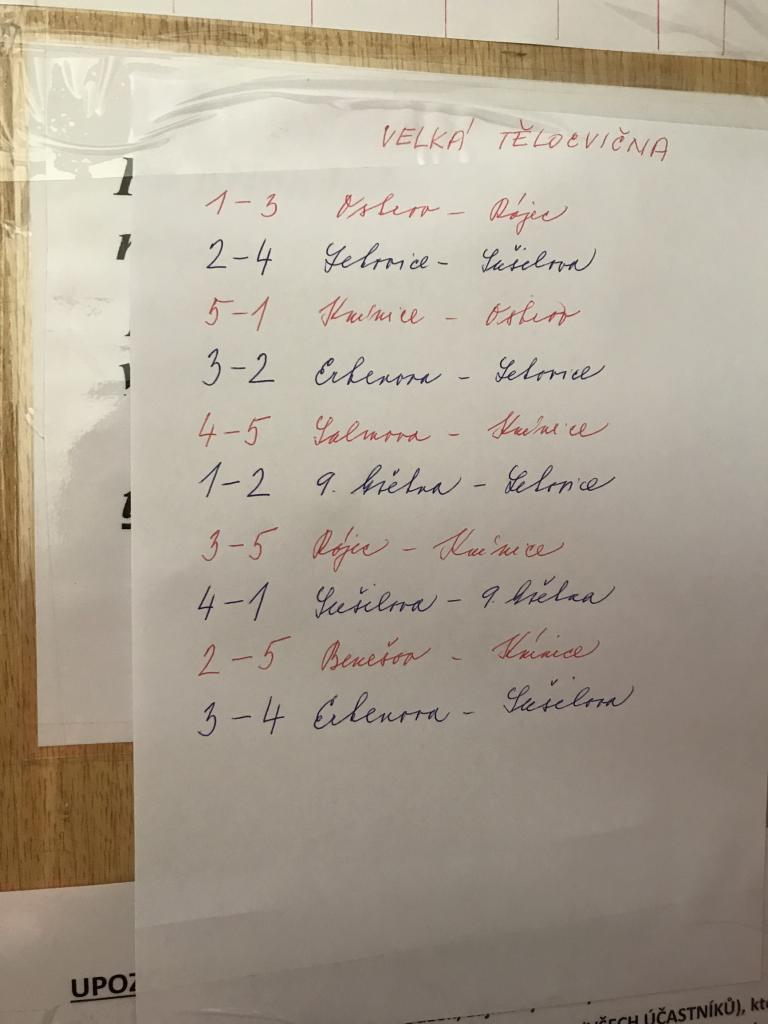 VELKÁ TĚLOCVIČNA
1-3 Ostrov - Rájec
2-4 Letovice - Sušilova
5-1 Knínice - Ostrov
3-2 Erbenova - Letovice
4-5 Salmova - Knínice
1-2 9. května - Letovice
3-5 Rájec - Knínice
4-1 Sušilova - 9. května
2-5 Benešov - Knínice
3-4 Erbenova - Sušilova
UPOZ
VŠECH ÚČASTNÍKŮ), kt